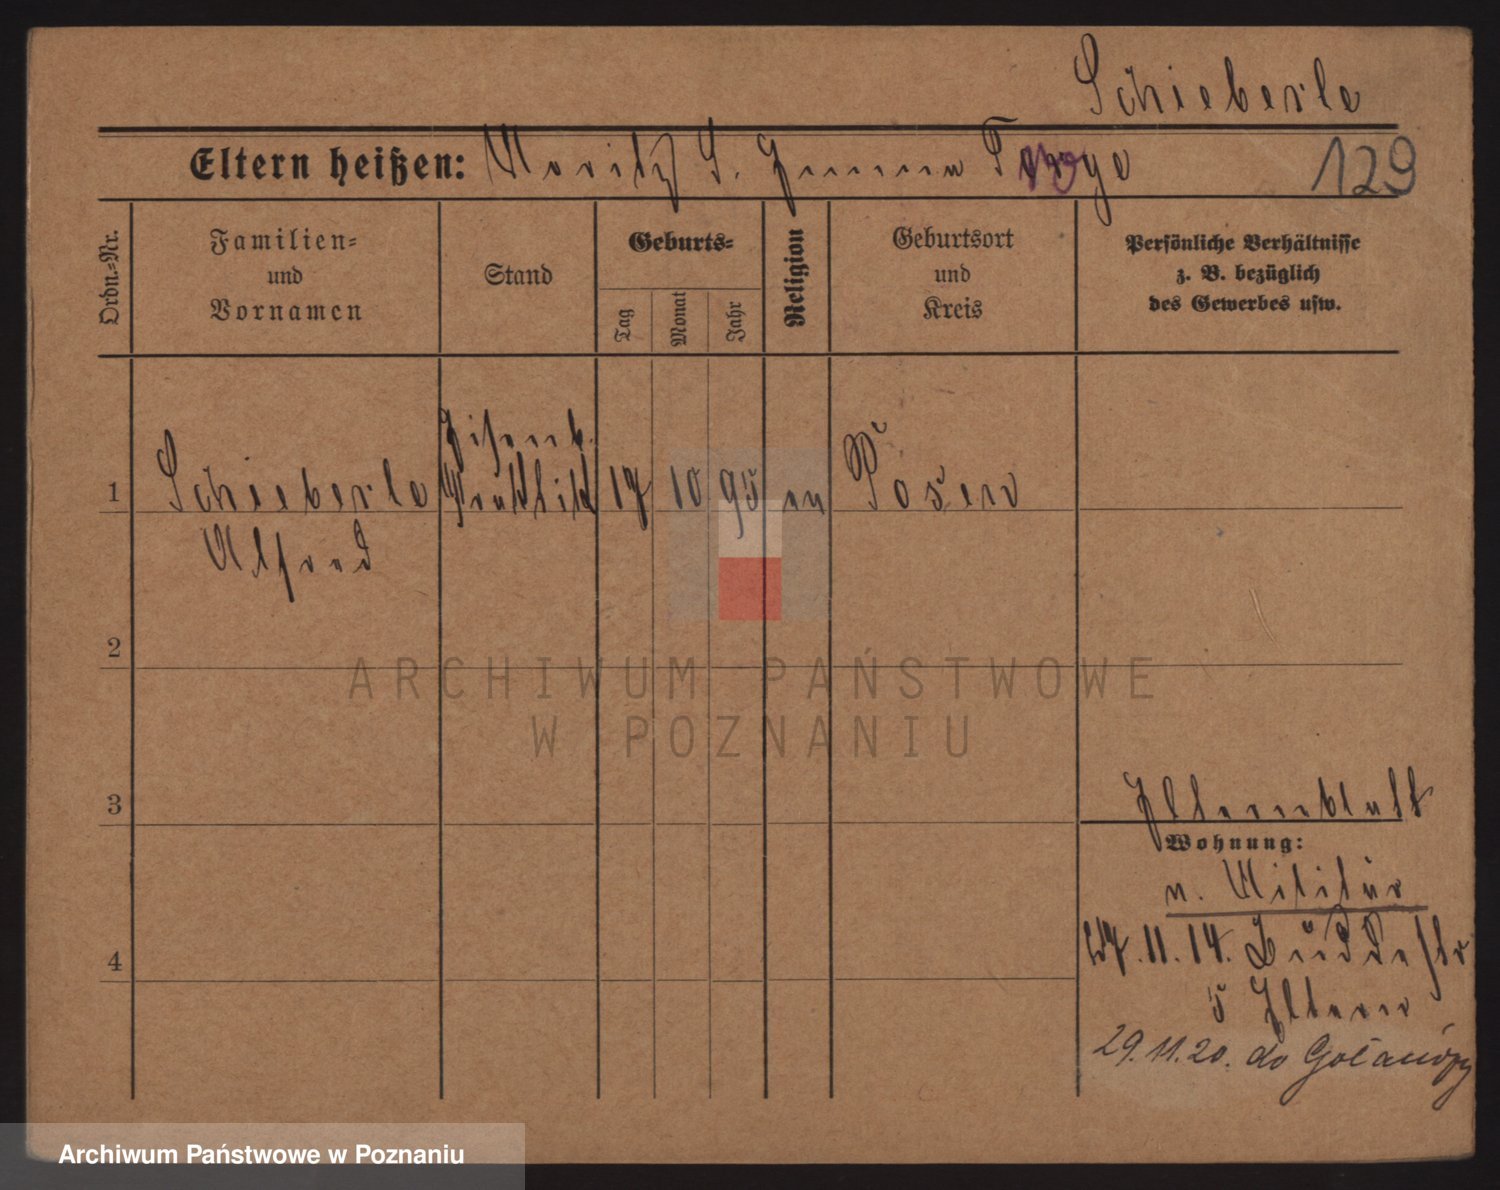 Schieberle
Eltern heißen: Moritz S. Emma
129
Ordn.=Nr.
Familien=
und
Vornamen
Stand
Geburts=
Tag
Monat
Jahr
Religion
Geburtsort
und
Kreis
Persönliche Verhältnisse
z. B. bezüglich
des Gewerbes usw.
1
Schieberle
Alfred
Eisenb.
17
10
95
ev
Posen
2
3
4
Elternblatt
Wohnung:
v. Militär
27.11.14. Buddestr
5 Eltern
29.11.20. do
ARCHIWUM PAŃSTWOWE
W POZNANIU
Archiwum Państwowe w Poznaniu